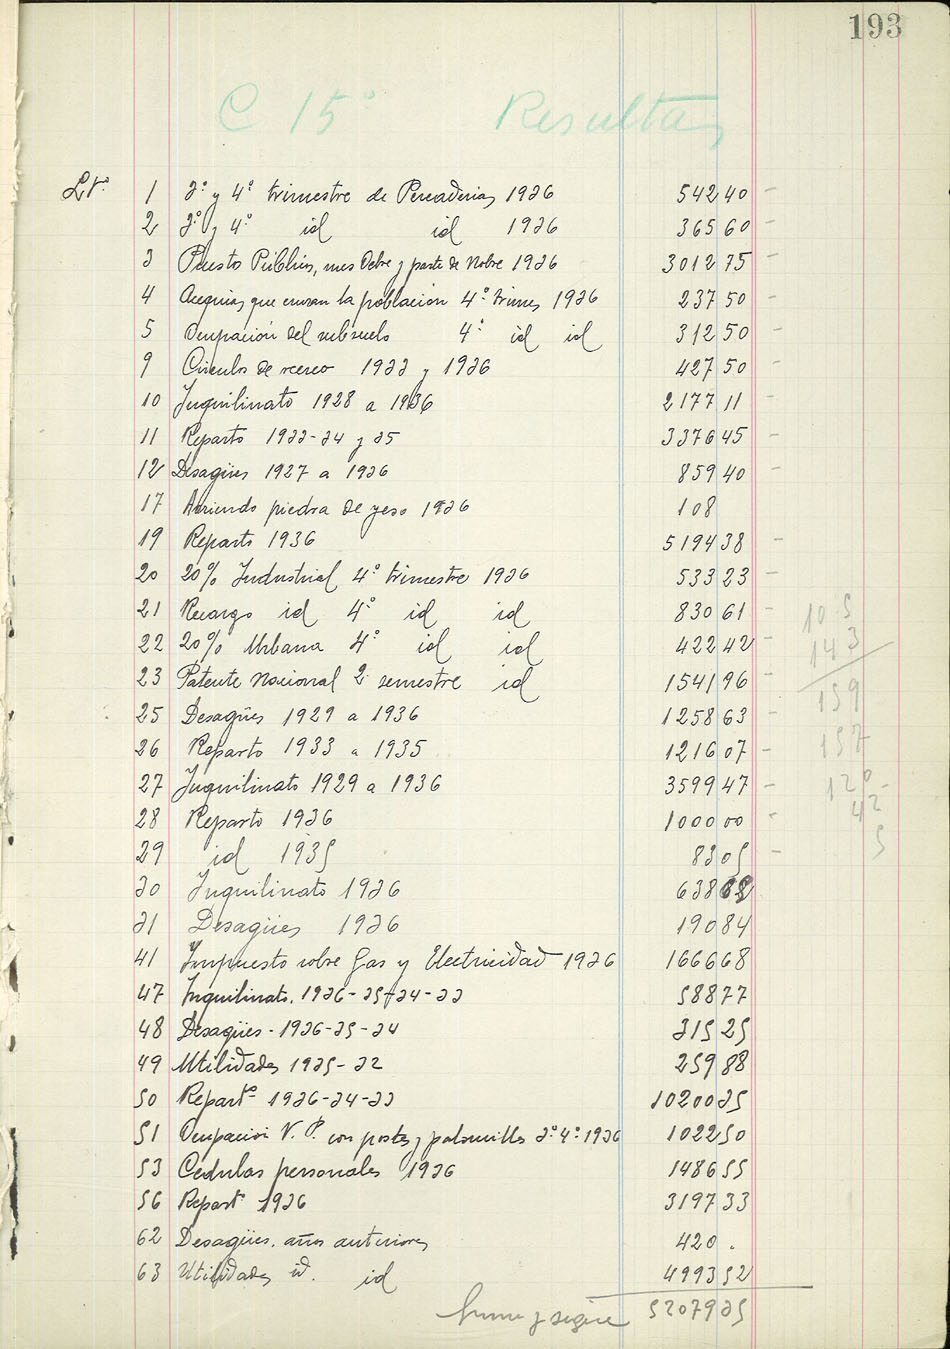 193
C 15º Resultas
Lº 1 3º y 4º trimestre de Pescaderias 1936 542 40 -
2 3º y 4º id id 1936 365 60 -
3 Puestos Públicos, mes Octbre y parte de Novbre 1936 3012 75 -
4 Acequias que cruzan la población 4º trimes 1936 237 50 -
5 Ocupación del subsuelo 4º id id 312 50 -
9 Circulos de recreo 1933 y 1936 427 50 -
10 Inquilinato 1928 a 1936 2177 11 -
11 Reparto 1933-34 y 35 3376 45 -
12 Desagües 1927 a 1936 859 40 -
17 Arriendo piedra de yeso 1936 108
19 Reparto 1936 5194 38 -
20 20% Industrial 4º trimestre 1936 533 23 -
21 Recargo id 4º id id 830 61 -
22 20% Urbana 4º id id 422 42 -
23 Patente Nacional 2º semestre id 1541 96 -
25 Desagües 1929 a 1936 1258 63 -
26 Reparto 1933 a 1935 1216 07 -
27 Inquilinato 1929 a 1936 3599 47 -
28 Reparto 1936 1000 00 -
29 id 1935 83 05 -
30 Inquilinato 1936 638 68
31 Desagües 1936 190 84
41 Impuesto sobre Gas y Electricidad 1936 1666 68
47 Inquilinato. 1936-35-34-33 588 77
48 Desagües - 1936-35-34 315 25
49 Utilidades 1935-32 259 88
50 Repartº 1936-34-33 10200 35
51 Ocupación V. P. con postes y palomillas 3º 4º 1936 1022 50
53 Cedulas personales 1936 1486 55
56 Repartº 1936 3197 33
62 Desagües. años anteriores 420 .
63 Utilidades id. id 4993 52
Suma y sigue 52079 35
105
143
159
157
120
42
5